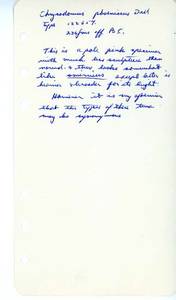 Chrysodomus phoeniceus Dall
Type 122607.
238 fms off B.C.
This is a pale pink specimen
with much less sculpture than
normal & thus looks somewhat
like except later is
heavier broader for its height
However it is my opinion
that the types of these two
may be synonyms